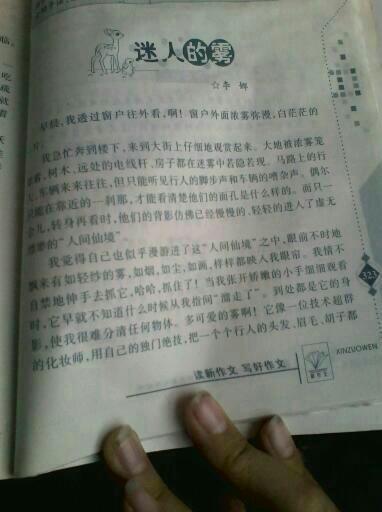 迷人的雾
☆李 娜
早晨,我透过窗户往外看,啊!窗户外面浓雾弥漫,白茫茫的
一片。
我急忙奔到楼下,来到大街上仔细地观赏起来。大地被浓雾笼
罩着,树木、远处的电线杆、房子都在迷雾中若隐若现。马路上的行
人、车辆来来往往,但只能听见行人的脚步声和车辆的嘈杂声。偶尔
只能在靠近的一刹那,才能看清楚他们的面孔是什么样的。而只一
会儿,转身再看时,他们的背影仿佛已经慢慢的、轻轻的进入了虚无
缥缈的“人间仙境”。
我觉得自己也似乎漫游进了这“人间仙境”之中,眼前不时地
飘来有如轻纱的雾,如烟,如尘,如画,样样都映入我眼帘。我情不
自禁地伸手去抓它,哈哈,抓住了!当我张开娇嫩的小手细细观看
时,它早就不知道什么时候从我指间“溜走了”。到处都是它的身
影,使我很难分清任何物体。多可爱的雾啊!它像一位技术超群
的化妆师,用自己的独门绝技,把一个个行人的头发、眉毛、胡子都
读新作文 写好作文
323
XINZUOWEN
新作文